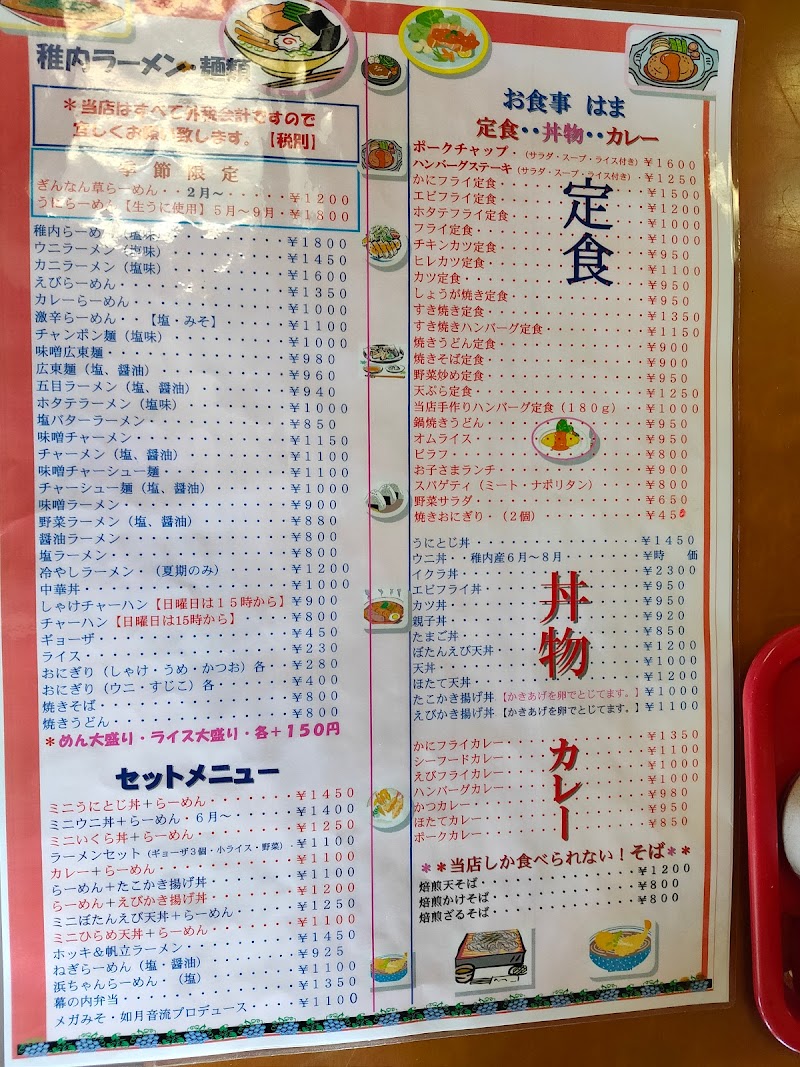 稚内ラーメン・麺類
＊当店はすべて外税会計ですので
宜しくお願い致します。【税別】
季節限定
ぎんなん草らーめん・・２月～・・・・・・￥１２００
うにらーめん【生うに使用】５月～９月・￥１８００
稚内らーめん（塩味）・・・・・・・・￥１８００
ウニラーメン（塩味）・・・・・・・・￥１４５０
カニラーメン（塩味）・・・・・・・・￥１６００
えびらーめん・・・・・・・・・・・・￥１３５０
カレーらーめん・・・・・・・・・・・￥１０００
激辛らーめん・・【塩・みそ】・・・・・￥１１００
チャンポン麺（塩味）・・・・・・・・￥１０００
味噌広東麺・・・・・・・・・・・・・￥９８０
広東麺（塩、醤油）・・・・・・・・・￥９６０
五目ラーメン（塩、醤油）・・・・・・￥９４０
ホタテラーメン（塩味）・・・・・・・￥１０００
塩バターラーメン・・・・・・・・・・￥８５０
味噌チャーメン・・・・・・・・・・・￥１１５０
チャーメン（塩、醤油）・・・・・・・￥１１００
味噌チャーシュー麺・・・・・・・・・￥１１００
チャーシュー麺（塩、醤油）・・・・・￥１０００
味噌ラーメン・・・・・・・・・・・・￥９００
野菜ラーメン（塩、醤油）・・・・・・￥８８０
醤油ラーメン・・・・・・・・・・・・￥８００
塩ラーメン・・・・・・・・・・・・・￥８００
冷やしラーメン・・（夏期のみ）・・・・￥１２００
中華丼・・・・・・・・・・・・・・・￥１０００
しゃけチャーハン【日曜日は１５時から】￥９００
チャーハン【日曜日は15時から】・・・￥８００
ギョーザ・・・・・・・・・・・・・・￥４５０
ライス・・・・・・・・・・・・・・・￥２３０
おにぎり（しゃけ・うめ・かつお）各・・￥２８０
おにぎり（ウニ・すじこ）各・・・・・￥４００
焼きそば・・・・・・・・・・・・・・￥８００
焼きうどん・・・・・・・・・・・・・￥８００
＊めん大盛り・ライス大盛り・各＋１５０円
セットメニュー
ミニうにとじ丼＋らーめん・・・・・・・￥１４５０
ミニウニ丼＋らーめん・６月～・・・・・￥１４００
ミニいくら丼＋らーめん・・・・・・・・￥１２５０
ラーメンセット（ギョーザ３個・小ライス・野菜）・￥１１００
カレー＋らーめん・・・・・・・・・・・￥１１００
らーめん＋たこかき揚げ丼・・・・・・・￥１１００
らーめん＋えびかき揚げ丼・・・・・・・￥１２００
ミニぼたんえび天丼＋らーめん・・・・・￥１２５０
ミニひらめ天丼＋らーめん・・・・・・・￥１１００
ホッキ＆帆立ラーメン・・・・・・・・・￥１４５０
ねぎらーめん（塩・醤油）・・・・・・・￥９２５
浜ちゃんらーめん・（塩）・・・・・・・￥１１００
幕の内弁当・・・・・・・・・・・・・・￥１３５０
メガみそ・如月音流プロデュース・・・・￥１１００
お食事 はま
定食・・丼物・・カレー
定食
ポークチャップ・（サラダ・スープ・ライス付き）￥１６００
ハンバーグステーキ（サラダ・スープ・ライス付き）・￥１２５０
かにフライ定食・・・・・・・・・・￥１５００
エビフライ定食・・・・・・・・・・￥１２００
ホタテフライ定食・・・・・・・・・￥１０００
フライ定食・・・・・・・・・・・・￥１０００
チキンカツ定食・・・・・・・・・・￥９５０
ヒレカツ定食・・・・・・・・・・・￥１１００
カツ定食・・・・・・・・・・・・・￥９５０
しょうが焼き定食・・・・・・・・・￥９５０
すき焼き定食・・・・・・・・・・・￥１３５０
すき焼きハンバーグ定食・・・・・・￥１１５０
焼きうどん定食・・・・・・・・・・￥９００
焼きそば定食・・・・・・・・・・・￥９００
野菜炒め定食・・・・・・・・・・・￥９５０
天ぷら定食・・・・・・・・・・・・￥１２５０
当店手作りハンバーグ定食（１８０ｇ）・・￥１０００
鍋焼きうどん・・・・・・・・・・・￥９５０
オムライス・・・・・・・・・・・・￥９５０
ピラフ・・・・・・・・・・・・・・￥８００
お子さまランチ・・・・・・・・・・￥９００
スパゲティ（ミート・ナポリタン）・・・￥８００
野菜サラダ・・・・・・・・・・・・￥６５０
焼きおにぎり・（２個）・・・・・・・￥４５０
丼物
うにとじ丼・・・・・・・・・・・・￥１４５０
ウニ丼・・稚内産６月～８月・・・・・・￥時　価
イクラ丼・・・・・・・・・・・・・￥２３００
エビフライ丼・・・・・・・・・・・￥９５０
カツ丼・・・・・・・・・・・・・・￥９５０
親子丼・・・・・・・・・・・・・・￥９２０
たまご丼・・・・・・・・・・・・・￥８５０
ぼたんえび天丼・・・・・・・・・・￥１２００
天丼・・・・・・・・・・・・・・・￥１０００
ほたて天丼・・・・・・・・・・・・￥１２００
たこかき揚げ丼【かきあげを卵でとじてます。】￥１０００
えびかき揚げ丼【かきあげを卵でとじてます。】￥１１００
カレー
かにフライカレー・・・・・・・・・￥１３５０
シーフードカレー・・・・・・・・・￥１１００
えびフライカレー・・・・・・・・・￥１０００
ハンバーグカレー・・・・・・・・・￥１０００
かつカレー・・・・・・・・・・・・￥９８０
ほたてカレー・・・・・・・・・・・￥９５０
ポークカレー・・・・・・・・・・・￥８５０
＊＊当店しか食べられない！そば＊＊
焙煎天そば・・・・・・・・・・・・￥１２００
焙煎かけそば・・・・・・・・・・・￥８００
焙煎ざるそば・・・・・・・・・・・￥８００